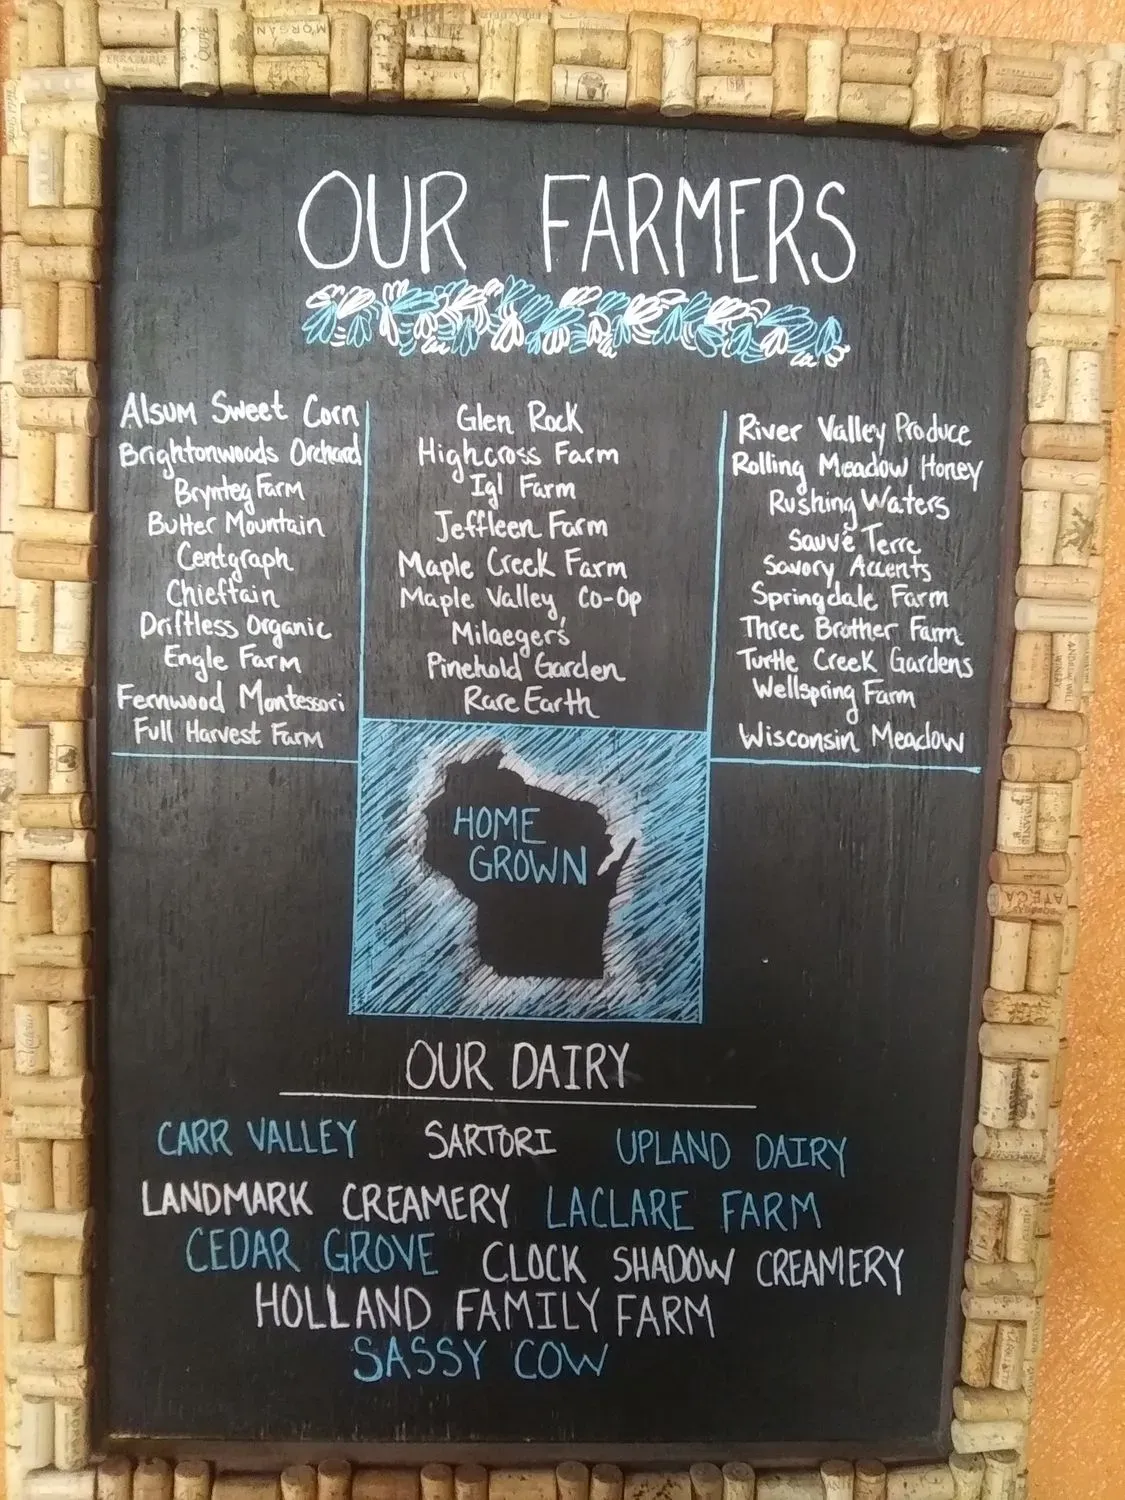 OUR FARMERS
Alsum Sweet Corn
Brightonwoods Orchard
Brynteg Farm
Butter Mountain
Centgraph
Chieftain
Driftless Organic
Engle Farm
Fernwood Montessori
Full Harvest Farm
Glen Rock
Highcross Farm
Igl Farm
Jeffleen Farm
Maple Creek Farm
Maple Valley Co-Op
Milaeger's
Pinehold Garden
Rare Earth
River Valley Produce
Rolling Meadow Honey
Rushing Waters
Sauvé Terre
Savory Accents
Springdale Farm
Three Brother Farm
Turtle Creek Gardens
Wellspring Farm
Wisconsin Meadow
HOME
GROWN
OUR DAIRY
CARR VALLEY SARTORI UPLAND DAIRY
LANDMARK CREAMERY LACLARE FARM
CEDAR GROVE CLOCK SHADOW CREAMERY
HOLLAND FAMILY FARM
SASSY COW
MORGAN